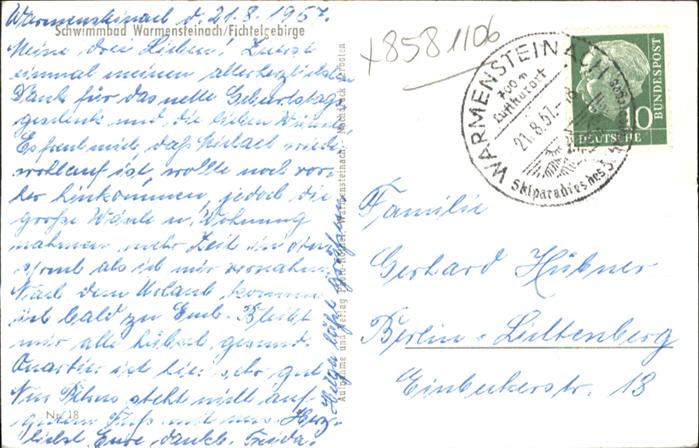 Warmensteinach d. 21.8.1957.
Schwimmbad Warmensteinach/Fichtelgebirge
Meine drei Lieben! Zuerst
einmal meinen allerherzlichsten
Dank für das nette Geburtstags
geschenk und die lieben Wünsche
Es freut mich daß Michael wieder
wohlauf ist, wollte noch vor
her hinkommen, jedoch die
große Wäsche u. Wohnung
nahmen mehr Zeit in
als ich mir vornahm.
Nach dem Urlaub komme
ich bald zu Euch. Bleibt
mir alle hübsch gesund.
Quartier ist hier sehr gut
Nur steht nicht auf
gutem Fuß mit uns. Herz-
lichst Eure dankb. Frieda.
Nr. 18
Helga läßt grüßen
Aufnahme und Verlag Warmensteinach - Nachdruck verboten
+8581106
WARMENSTEINACH
700 m
Luftkurort
21.8.57.-18
Skiparadies des
10
DEUTSCHE
BUNDESPOST
Familie
Gerhard Hübner
Berlin-Lichtenberg
Einbeckerstr. 13